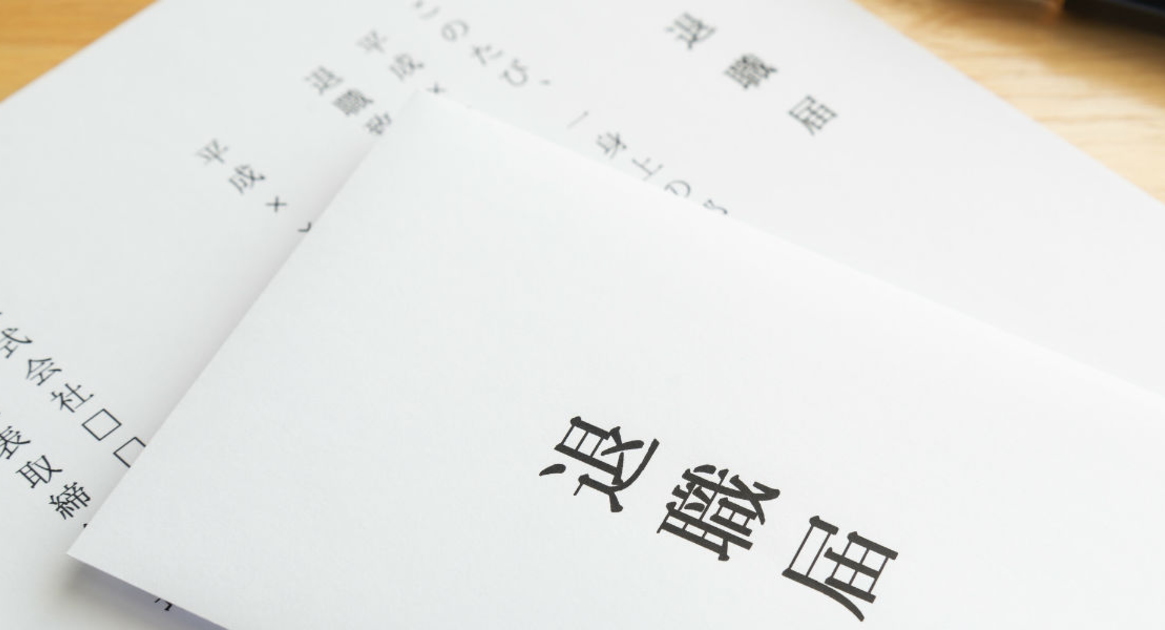 退職届
このたび、一身上の
平成×
退職致
平成×
式会社□□
表取締
退職届